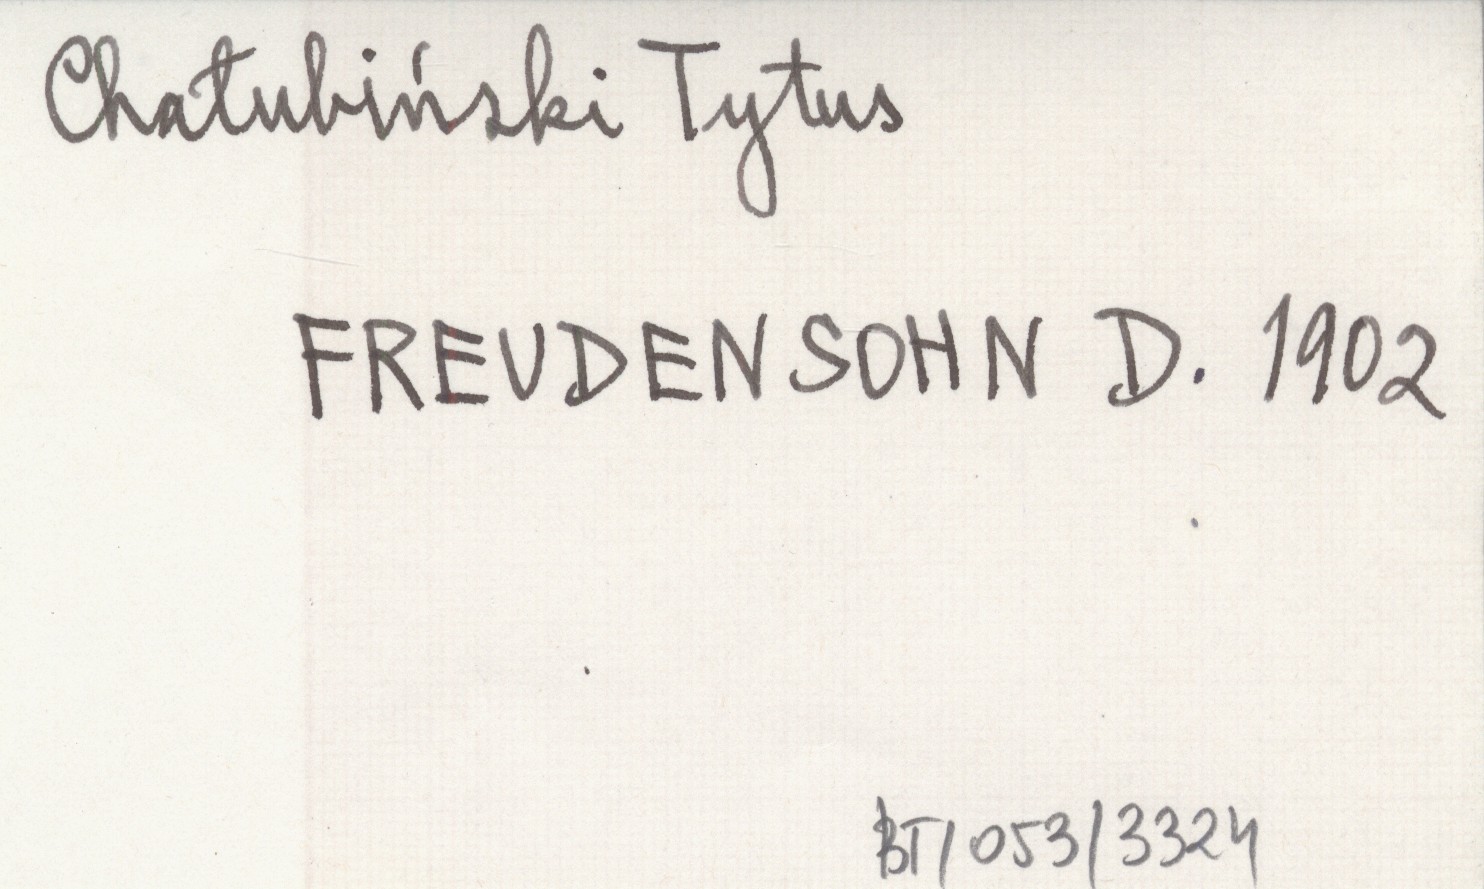 Chałubiński Tytus
FREUDENSOHN D. 1902
BT/053/3324